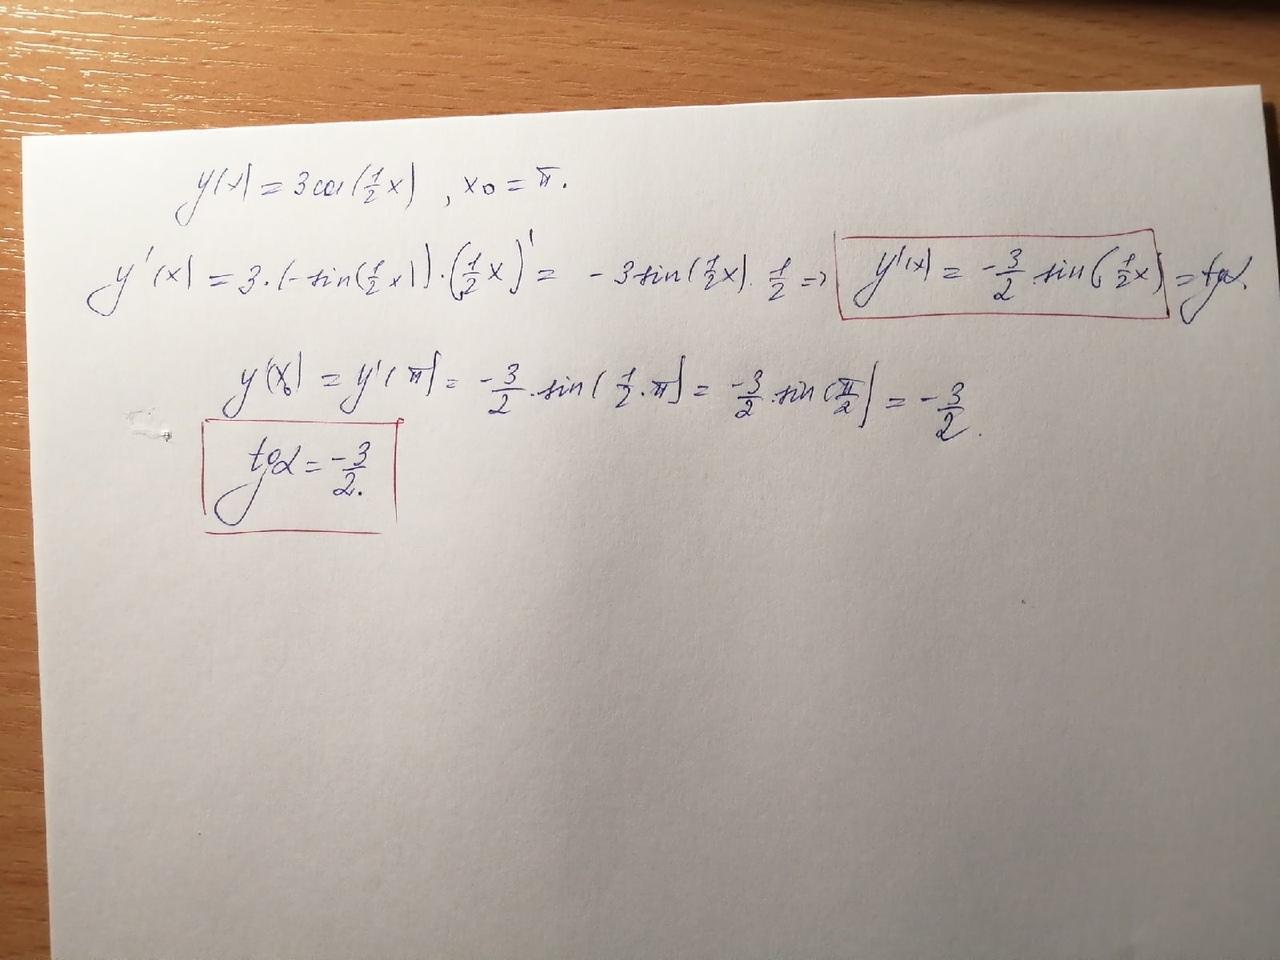 y(x) = 3cos(1/2 x), x₀ = π.
y'(x) = 3·(-sin(1/2 x))·(1/2 x)' = -3sin(1/2 x)·1/2 => y'(x) = -3/2 sin(1/2 x) = tgα.
y'(x₀) = y'(π) = -3/2·sin(1/2·π) = -3/2·sin(π/2) = -3/2.
tgα = -3/2.